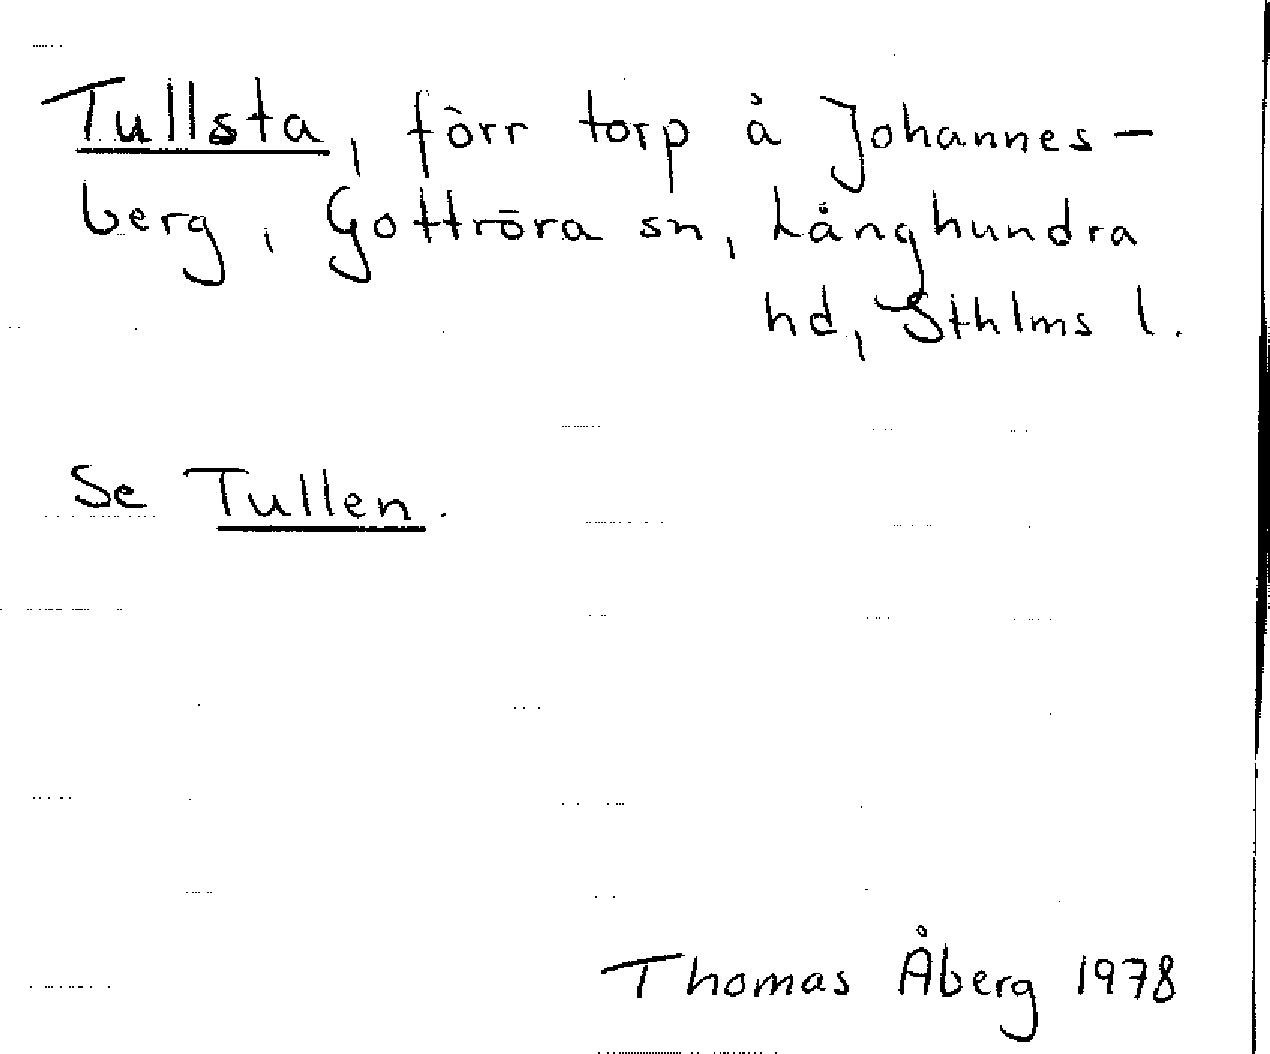 Tullsta, förr torp å Johannes-
berg, Gottröra sn, Långhundra
hd, Sthlms l.
Se Tullen.
Thomas Åberg 1978